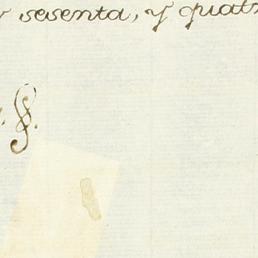 y sesenta, y quatr
§.